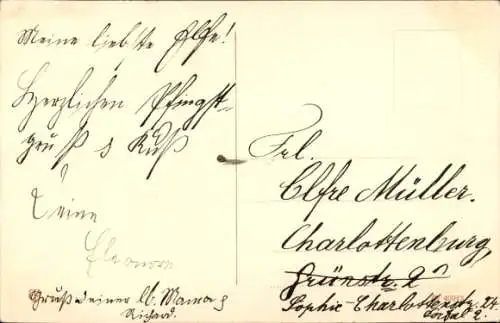 Meine liebste Elfe!
Herzlichen Pfingst-
gruß & Kuß
Deine
Eleonore
Gruß deiner lb. Mama &
Richard.
Frl.
Elfre Müller.
Charlottenburg,
Grünstr. 2
Sophie-Charlottenstr. 24